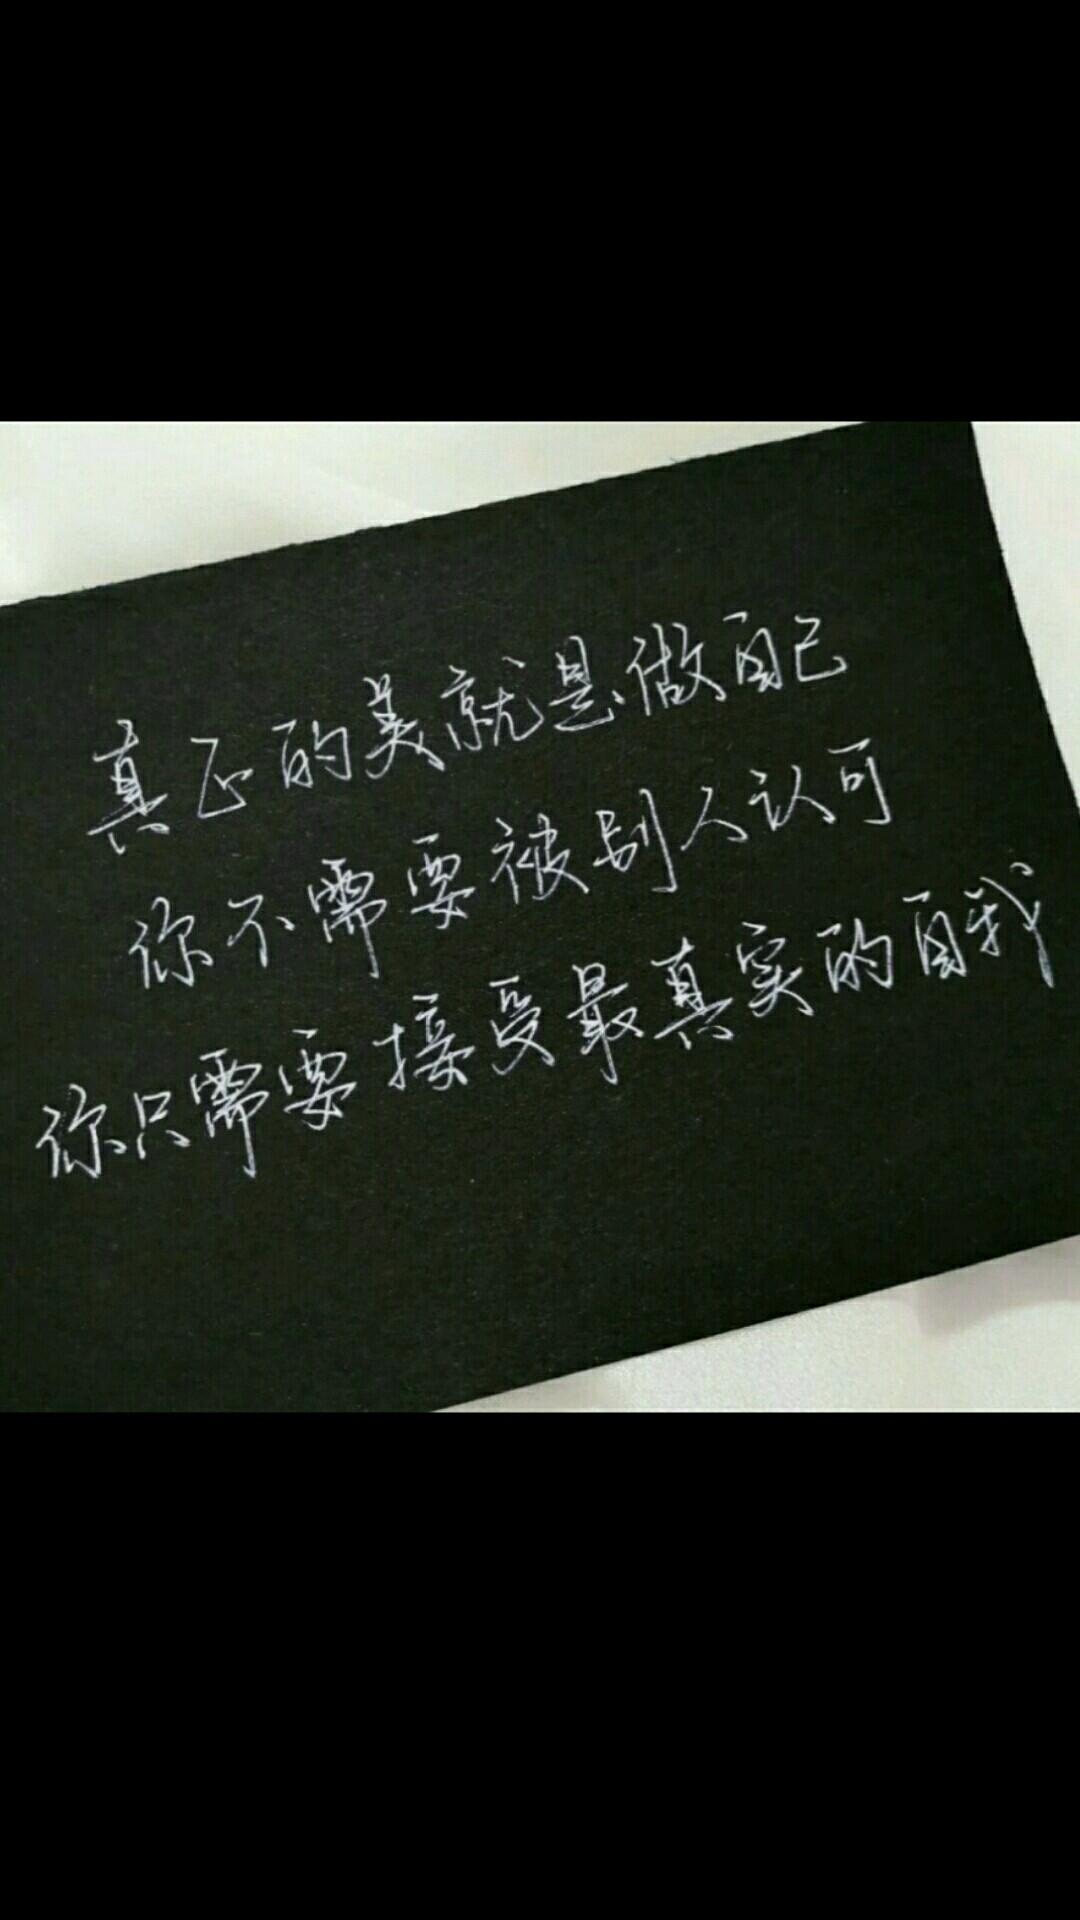 真正的美就是做自己
你不需要被别人认可
你只需要接受最真实的自我